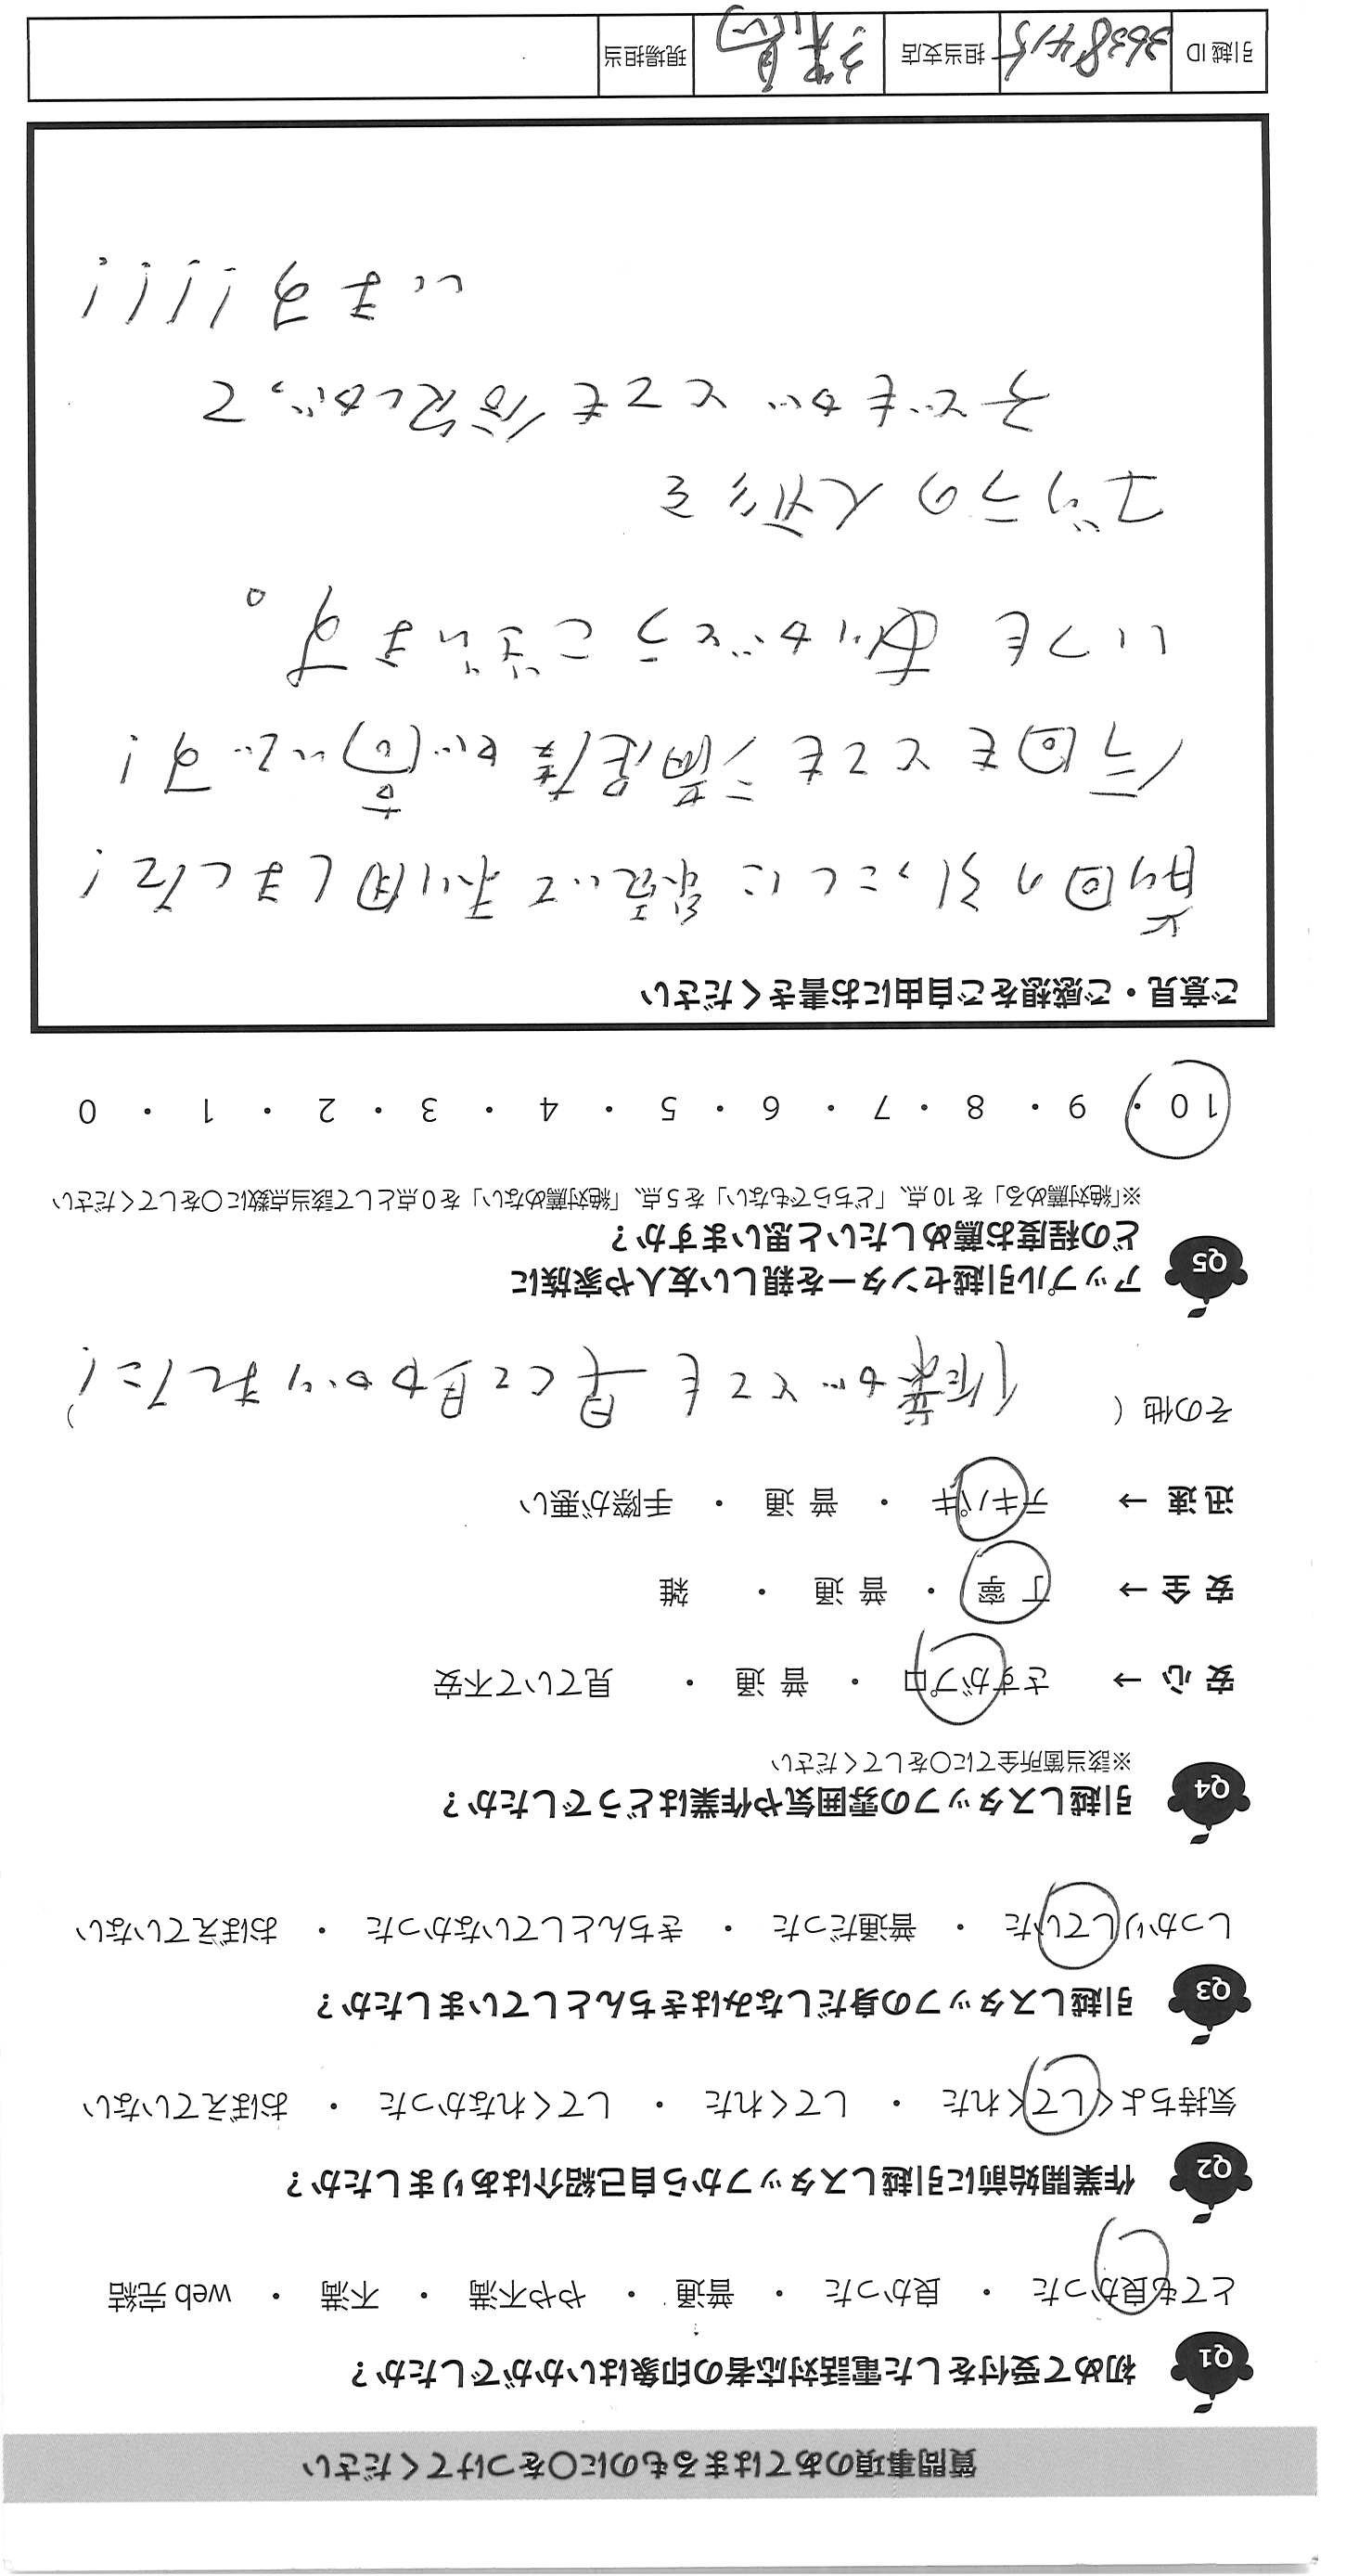 質問事項のあてはまるものに〇をつけてください
Q1 初めて受付をした電話対応者の印象はいかがでしたか？
とても良かった ・ 良かった ・ 普通 ・ やや不満 ・ 不満 ・ web 完結
Q2 作業開始前に引越しスタッフから自己紹介はありましたか？
気持ちよくしてくれた ・ してくれた ・ してくれなかった ・ おぼえていない
Q3 引越しスタッフの身だしなみはきちんとしていましたか？
しっかりしていた ・ 普通だった ・ きちんとしていなかった ・ おぼえていない
Q4 引越しスタッフの雰囲気や作業はどうでしたか？
※該当箇所全てに〇をしてください
安心 → さすがプロ ・ 普通 ・ 見ていて不安
安全 → 丁寧 ・ 普通 ・ 雑
迅速 → テキパキ ・ 普通 ・ 手際が悪い
その他（ 作業がとても早くて助かりました！ ）
Q5 アップル引越センターを親しい友人や家族に
どの程度お薦めしたいと思いますか？
※「絶対薦める」を10点、「どちらでもない」を5点、「絶対薦めない」を0点として該当点数に〇をしてください
10 ・ 9 ・ 8 ・ 7 ・ 6 ・ 5 ・ 4 ・ 3 ・ 2 ・ 1 ・ 0
ご意見・ご感想をご自由にお書きください
前回の引っこしに続いて利用しました！
今回もとても満足度が高いです！
いつもありがとうございます。
ゴリラの人形を
子どもがとても
います！！！！
引越 ID 担当支店 現場担当